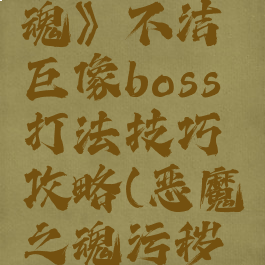 魂》不洁
巨像boss
打法技巧
攻略(恶魔
之魂污秽